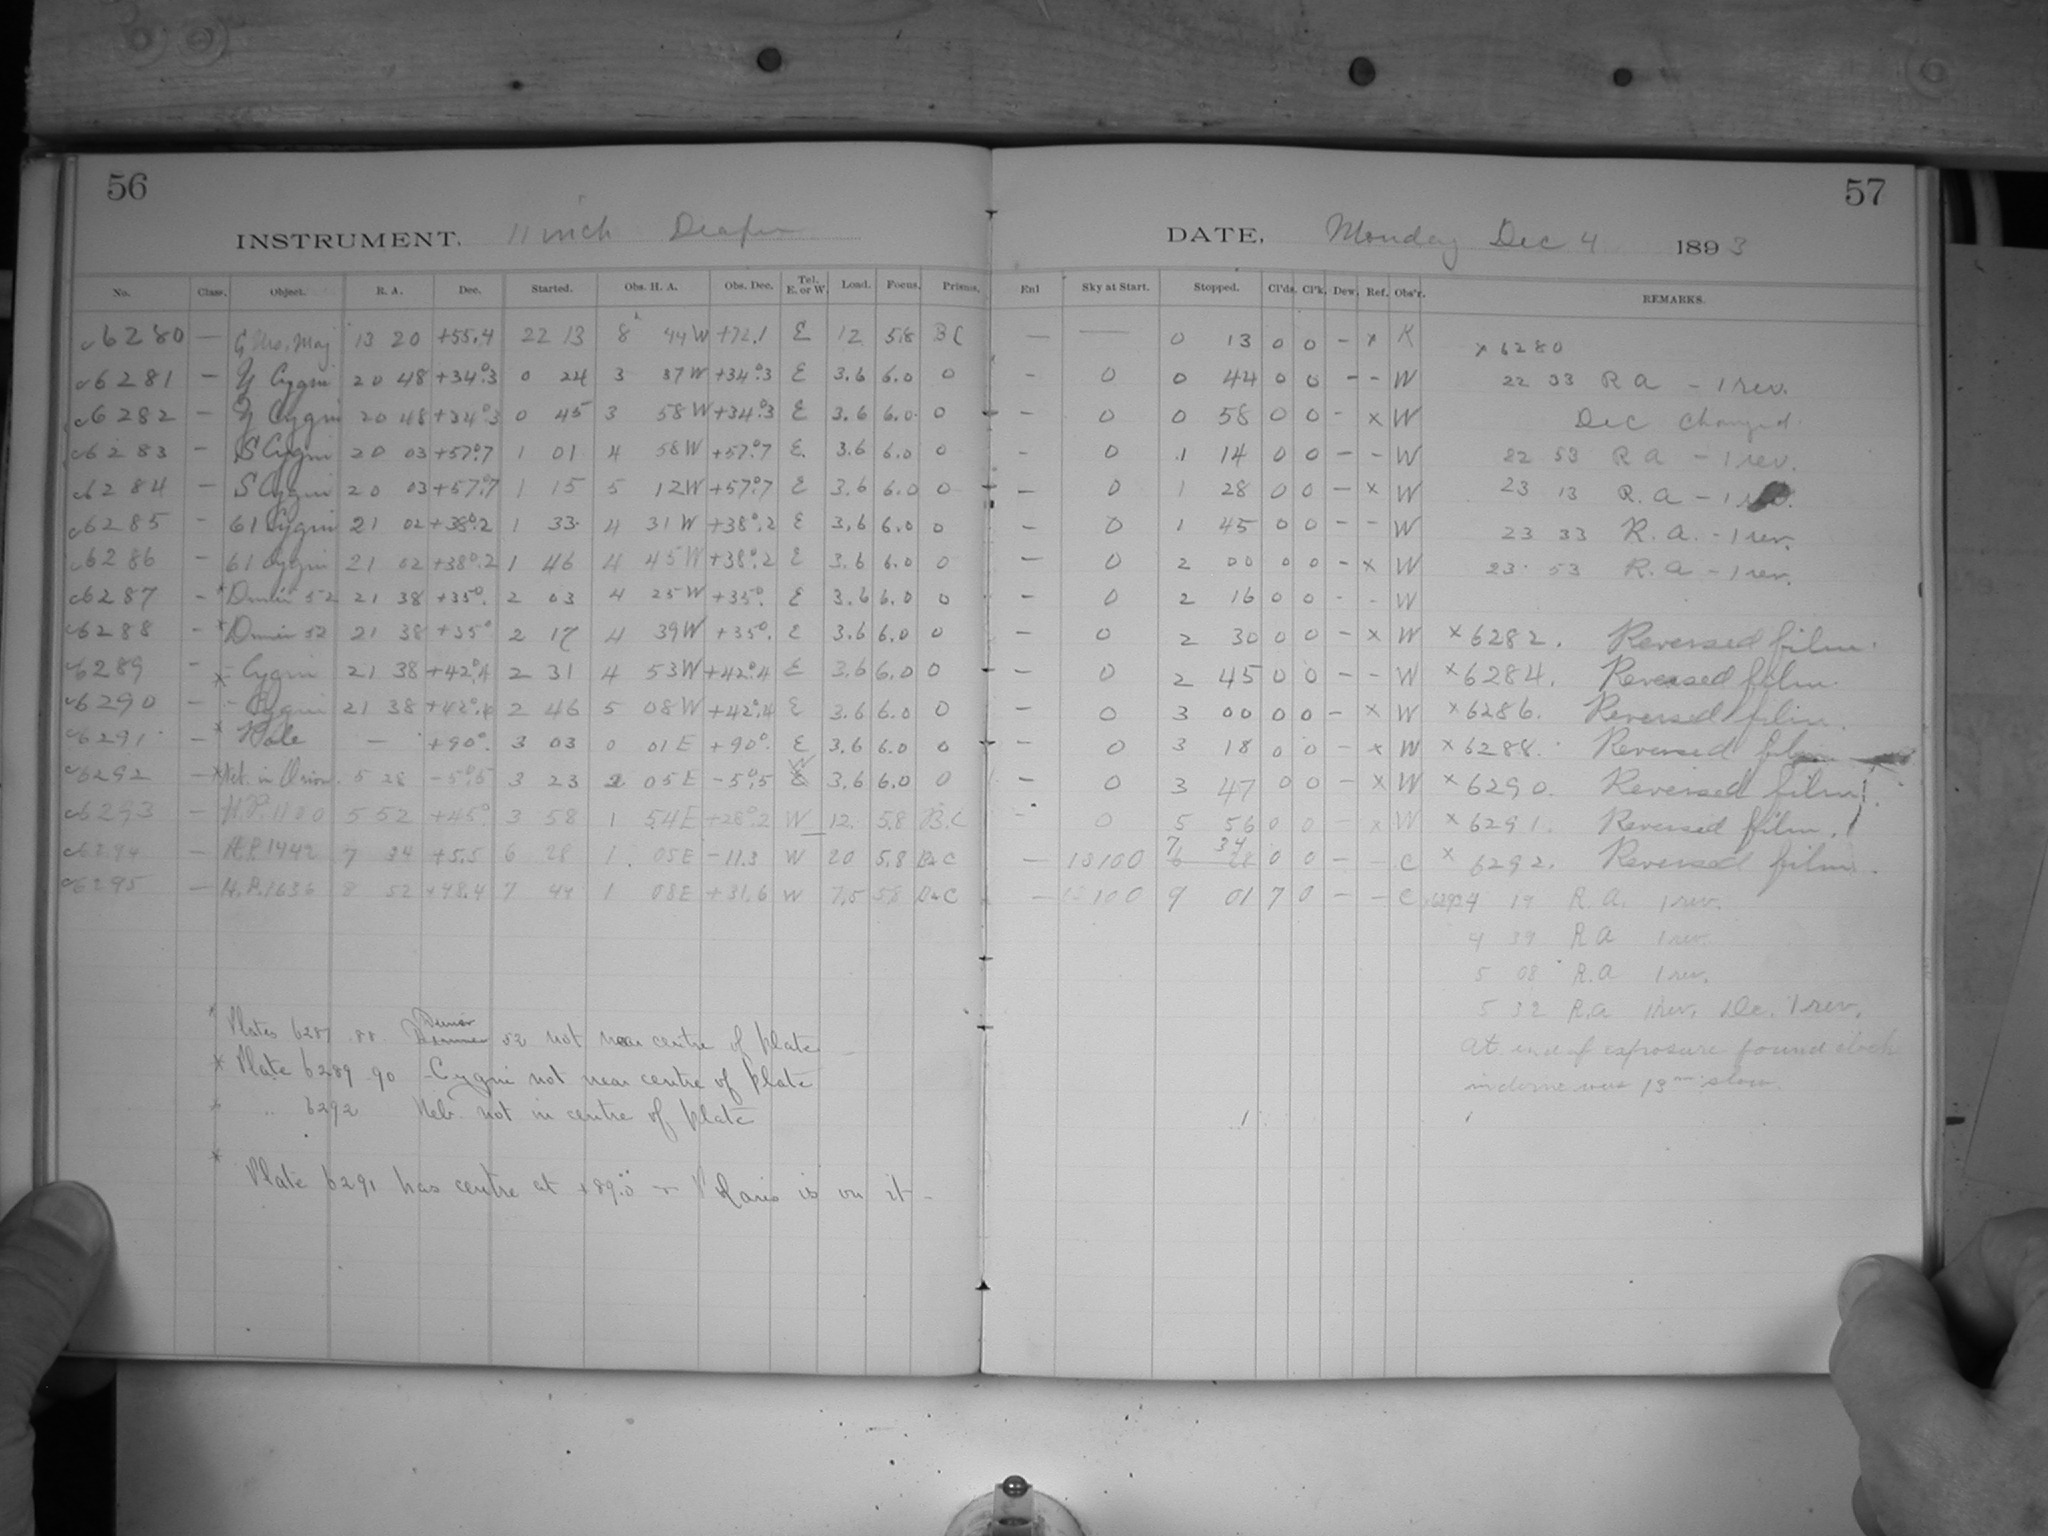 56
INSTRUMENT, 11 inch Draper
No. Class. Object. R. A. Dec. Started. Obs. H. A. Obs. Dec. Tel. E. or W. Load. Focus. Prisms.
c6280 — 13 20 +55.4 22 13 8 44 W +72.1 E 12 5.8 B C
c6281 — Y Cygni 20 48 +34°.3 0 24 3 37 W +34°.3 E 3.6 6.0 0
c6282 — Y Cygni 20 48 +34°.3 0 45 3 58 W +34°.3 E 3.6 6.0 0
c6283 — S Cygni 20 03 +57°.7 1 01 4 58 W +57°.7 E. 3.6 6.0 0
c6284 — S Cygni 20 03 +57°.7 1 15 5 12 W +57°.7 E 3.6 6.0 0
c6285 — 61 Cygni 21 02 +38°.2 1 33 4 31 W +38°.2 E 3.6 6.0 0
c6286 — 61 Cygni 21 02 +38°.2 1 46 4 45 W +38°.2 E 3.6 6.0 0
c6287 — * Dunér 52 21 38 +35°. 2 03 4 25 W +35°. E 3.6 6.0 0
c6288 — * Dunér 52 21 38 +35° 2 17 4 39 W +35°. E 3.6 6.0 0
c6289 — * - Cygni 21 38 +42°.4 2 31 4 53 W +42°.4 E 3.6 6.0 0
c6290 — - Cygni 21 38 +42°.4 2 46 5 08 W +42°.4 E 3.6 6.0 0
c6291 — * Pole — +90°. 3 03 0 01 E +90°. E 3.6 6.0 0
c6292 — * Neb. in Orion. 5 28 -5°.5 3 23 2 05 E -5°.5 W 3.6 6.0 0
c6293 — H.P. 1100 5 52 +45° 3 58 1 54 E +28°.2 W 12. 5.8 B.C
c6294 — H.P. 1442 7 34 +5.5 6 28 1 05 E -11.3 W 20 5.8 B&C
c6295 — H.P. 1636 8 52 +48.4 7 44 1 08 E +31.6 W 7.5 5.8 B&C
* Plates 6287 .88. Dunér 52 not near centre of plate
* Plate 6289 90 - Cygni not near centre of plate
" .. 6292 Neb. not in centre of plate
* Plate 6291 has centre at +89.°0 Polaris is on it -
57
DATE, Monday Dec 4 1893
Enl Sky at Start. Stopped. Cl'ds. Cl'k. Dew. Ref. Obs'r. REMARKS.
— — 0 13 0 0 - x K x 6280
- 0 0 44 0 0 - - W 22 33 R A - 1 rev.
- 0 0 58 0 0 - x W Dec changed.
- 0 1 14 0 0 - - W 22 53 R A - 1 rev.
- 0 1 28 0 0 - x W 23 13 R. A - 1 rev.
- 0 1 45 0 0 - - W 23 33 R. A. - 1 rev.
- 0 2 00 0 0 - x W 23 53 R. A - 1 rev.
- 0 2 16 0 0 - - W
- 0 2 30 0 0 - x W x 6282. Reversed film.
- 0 2 45 0 0 - - W x 6284. Reversed film.
- 0 3 00 0 0 - x W x 6286. Reversed film.
- 0 3 18 0 0 - x W x 6288. Reversed film
- 0 3 47 0 0 - x W x 6290. Reversed film.
- 0 5 56 0 0 - x W x 6291. Reversed film.
- 13100 7 34 0 0 - - C x 6292. Reversed film.
- 13100 9 01 7 0 - - C 4 19 R. A. 1 rev.
4 39 R A 1 rev.
5 08 R. A 1 rev.
5 32 R. A 1 rev. Dec. 1 rev.
At end of exposure found clock
in dome was 13m slow.